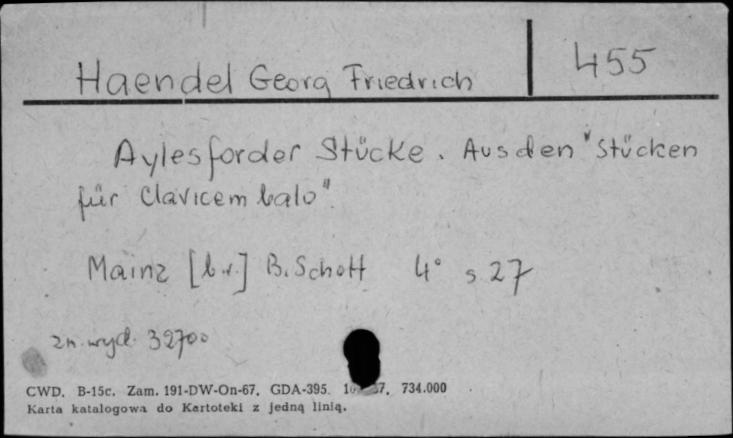 Haendel Georg Friedrich 455
Aylesforder Stücke. Aus den "Stücken
für Clavicembalo"
Mainz [b.r.] B. Schott 4° s 27
zn. wyd. 32700
CWD. B-15c. Zam. 191-DW-On-67. GDA-395. 734.000
Karta katalogowa do Kartoteki z jedną linią.